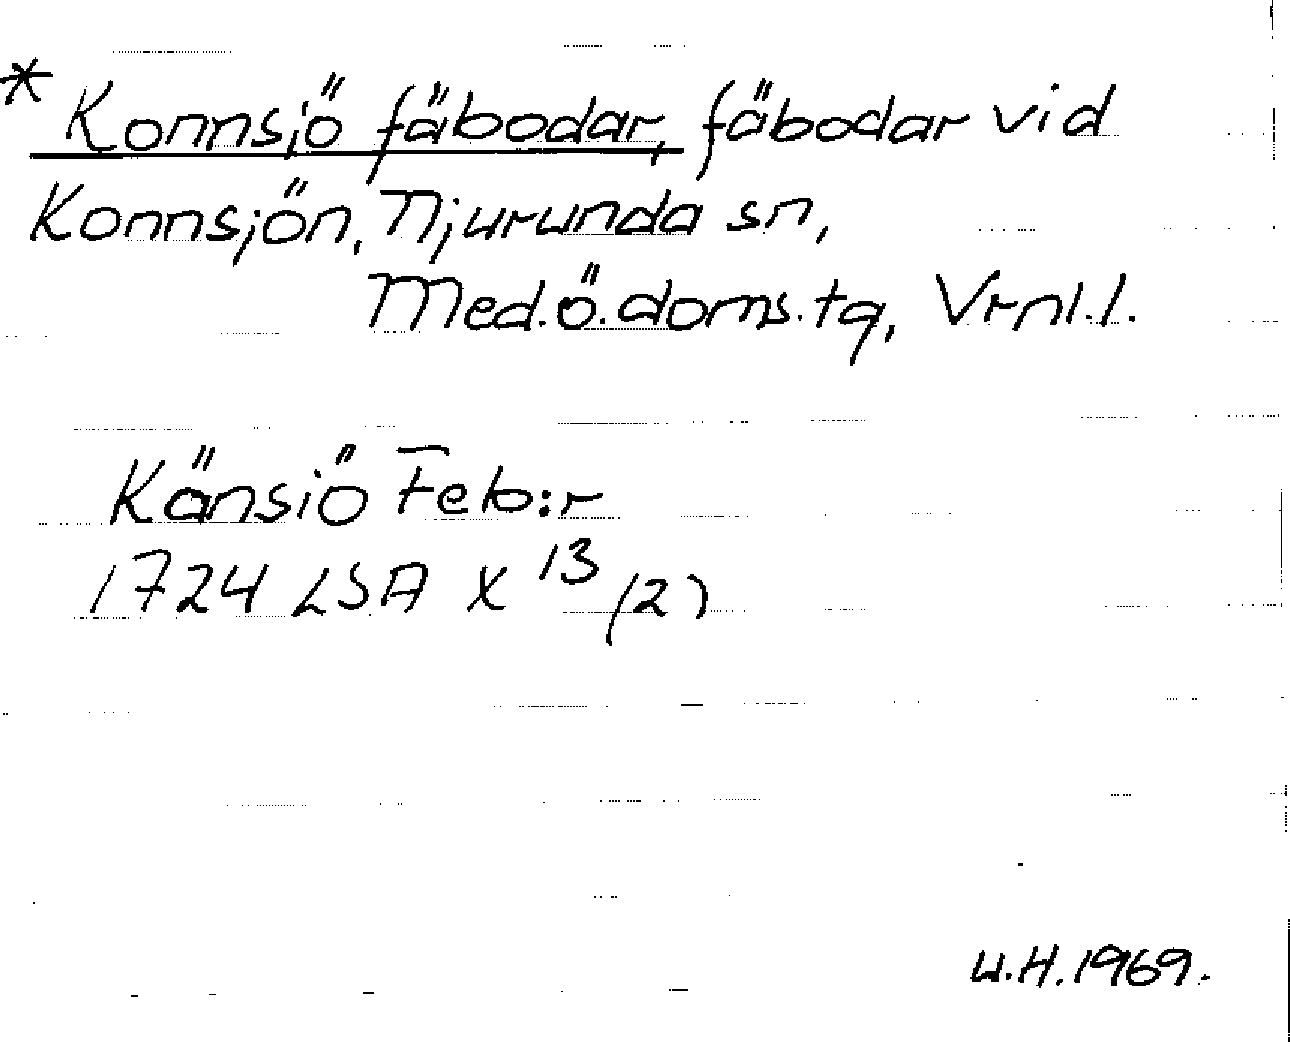 * Konnsjö fäbodar, fäbodar vid
Konnsjön, Njurunda sn,
Med.ö.doms.tg, Vrnl.l.
Känsiö Feb:r
1724 LSA X 13/(2)
U.H.1969.